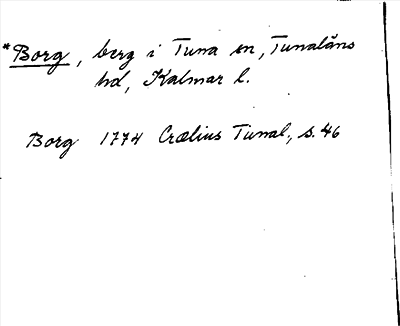 *Borg, berg i Tuna sn, Tunaläns
hd, Kalmar l.
Borg 1774 Crælius Tunal., s. 46